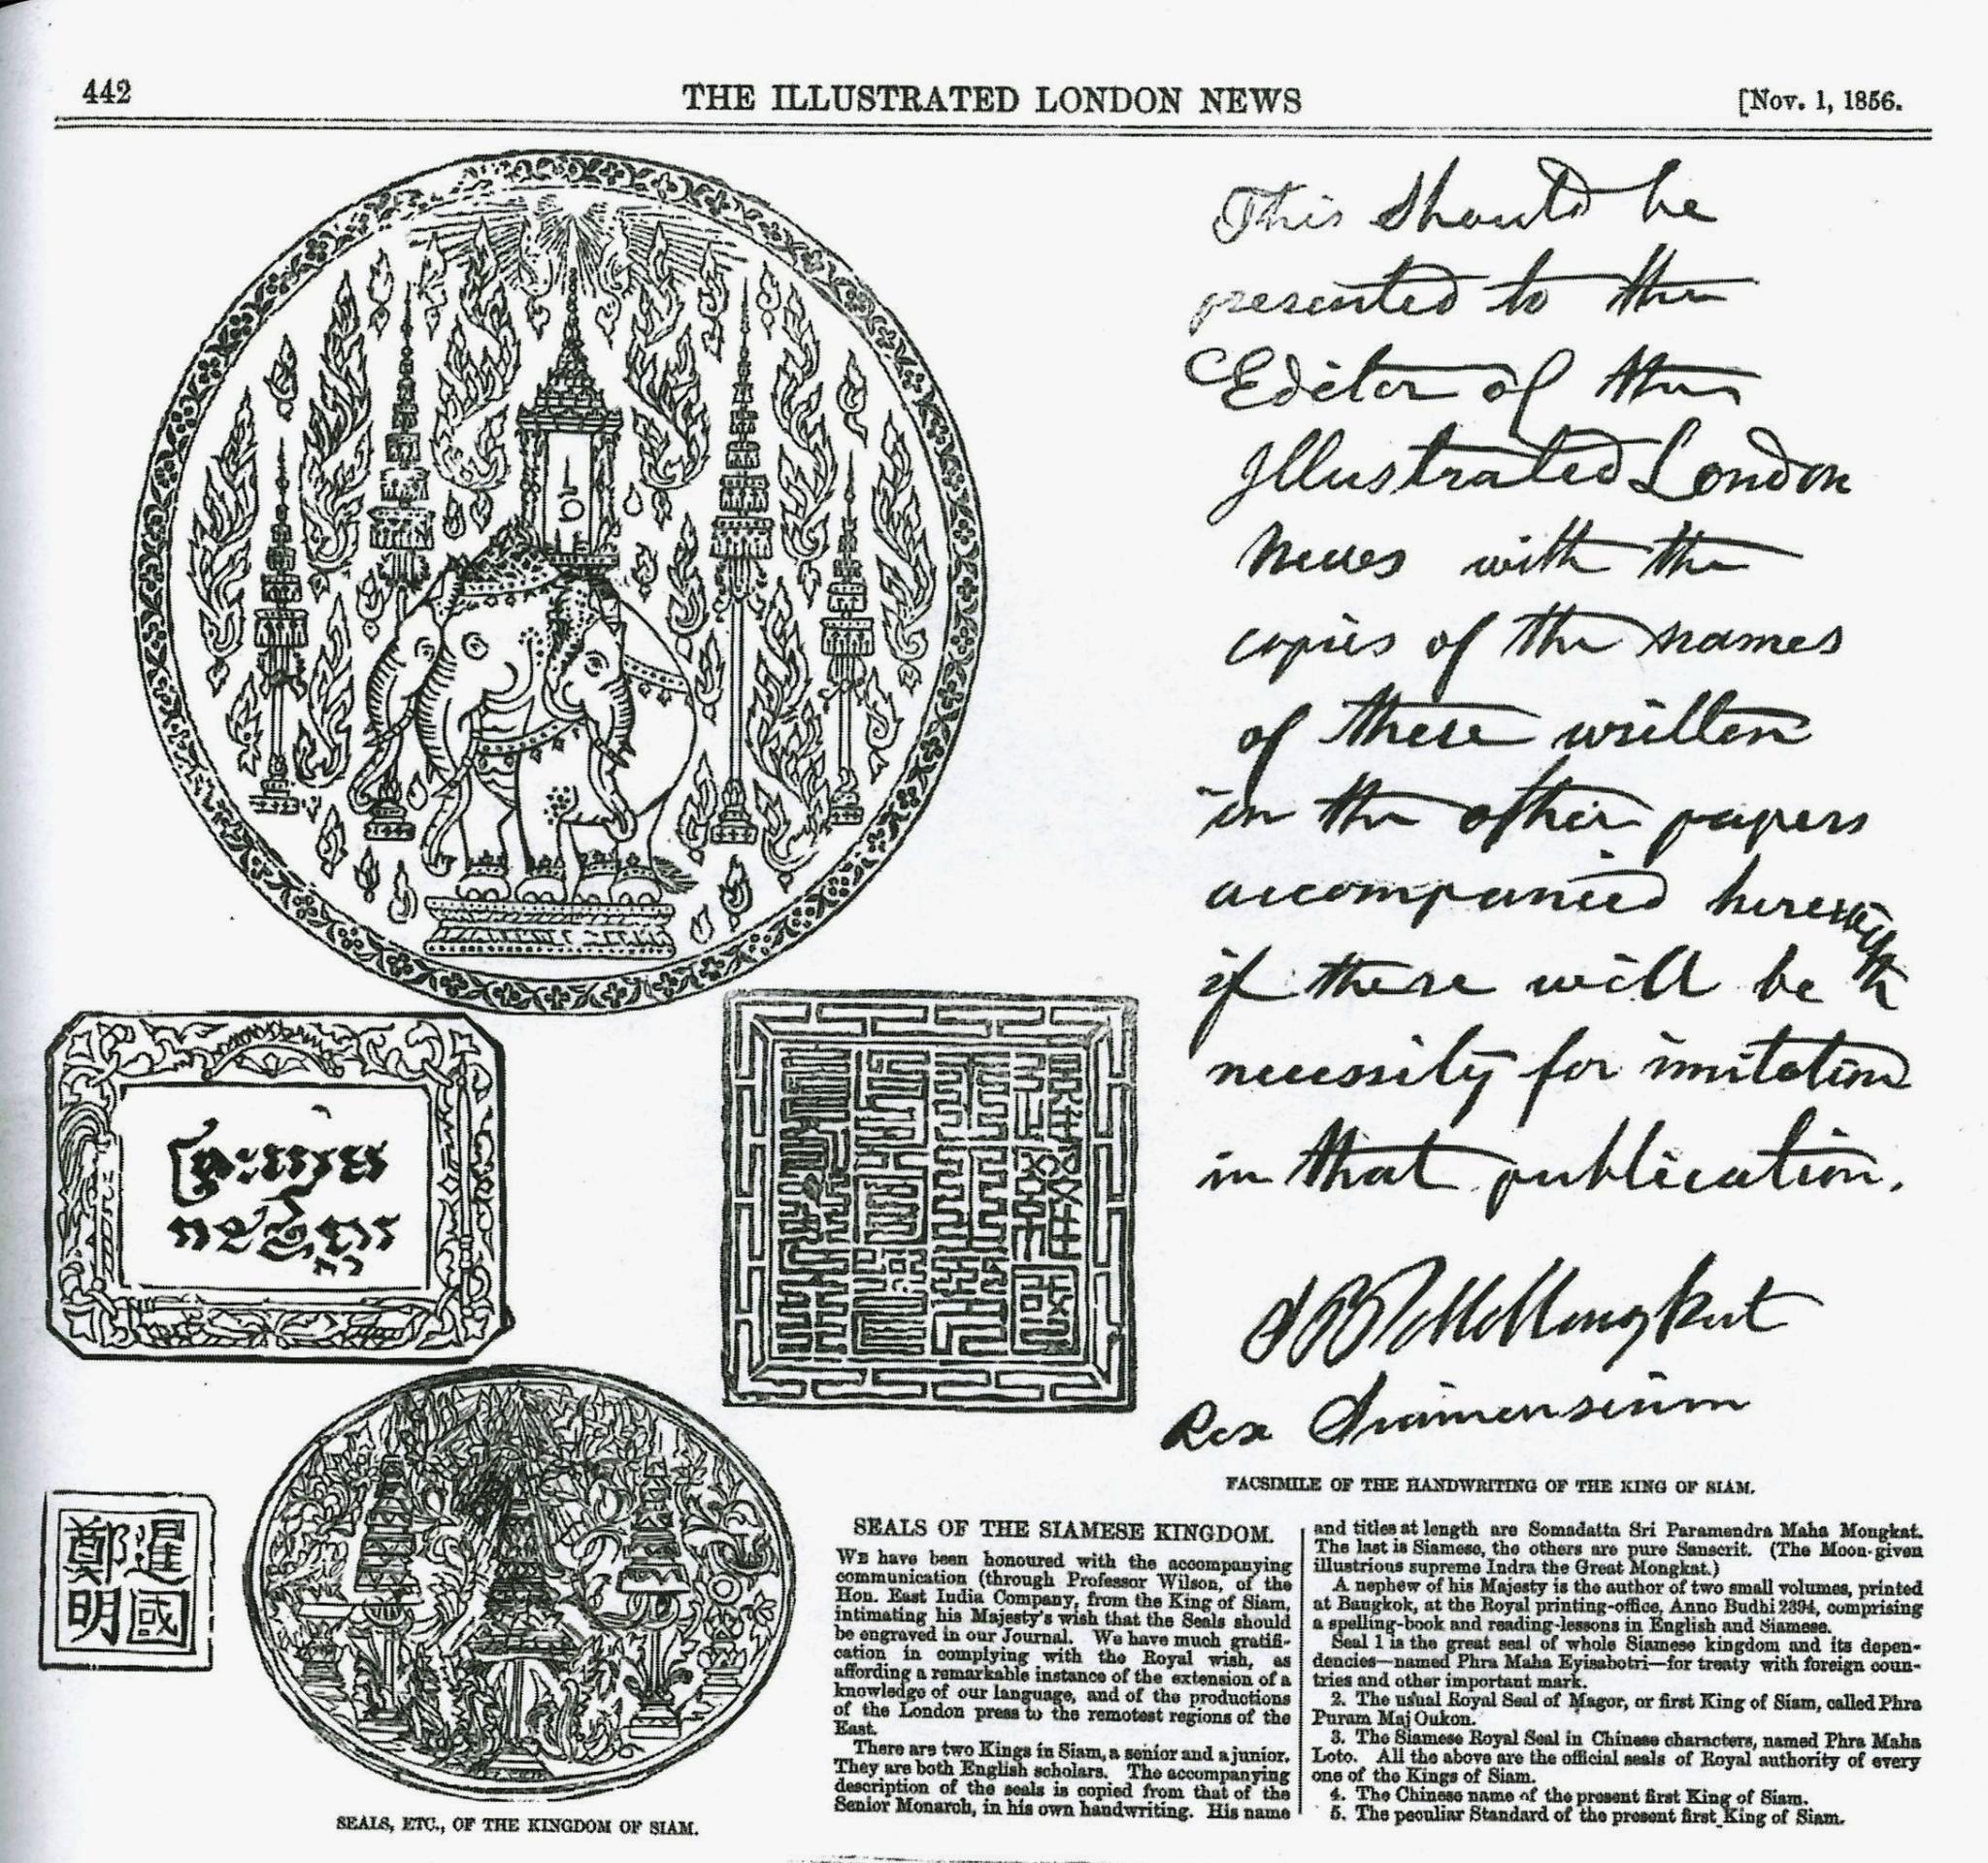 442
THE ILLUSTRATED LONDON NEWS
[Nov. 1, 1856.
This should be
presented to the
Editor of the
Illustrated London
News with the
copies of the names
of these written
in the other papers
accompanied herewith
if these will be
necessity for imitation
in that publication.
Mongkut
Rex Siamensium
FACSIMILE OF THE HANDWRITING OF THE KING OF SIAM.
暹國
鄭明
SEALS, ETC., OF THE KINGDOM OF SIAM.
SEALS OF THE SIAMESE KINGDOM.
WE have been honoured with the accompanying
communication (through Professor Wilson, of the
Hon. East India Company, from the King of Siam,
intimating his Majesty's wish that the Seals should
be engraved in our Journal. We have much gratifi-
cation in complying with the Royal wish, as
affording a remarkable instance of the extension of a
knowledge of our language, and of the productions
of the London press to the remotest regions of the
East.
There are two Kings in Siam, a senior and a junior.
They are both English scholars. The accompanying
description of the seals is copied from that of the
Senior Monarch, in his own handwriting. His name
and titles at length are Somadatta Sri Paramendra Maha Mongkat.
The last is Siamese, the others are pure Sanscrit. (The Moon-given
illustrious supreme Indra the Great Mongkat.)
A nephew of his Majesty is the author of two small volumes, printed
at Bangkok, at the Royal printing-office, Anno Budhi 2394, comprising
a spelling-book and reading-lessons in English and Siamese.
Seal 1 is the great seal of whole Siamese kingdom and its depen-
dencies—named Phra Maha Eyisabotri—for treaty with foreign coun-
tries and other important mark.
2. The usual Royal Seal of Magor, or first King of Siam, called Phra
Puram Maj Oukon.
3. The Siamese Royal Seal in Chinese characters, named Phra Maha
Loto. All the above are the official seals of Royal authority of every
one of the Kings of Siam.
4. The Chinese name of the present first King of Siam.
5. The peculiar Standard of the present first King of Siam.